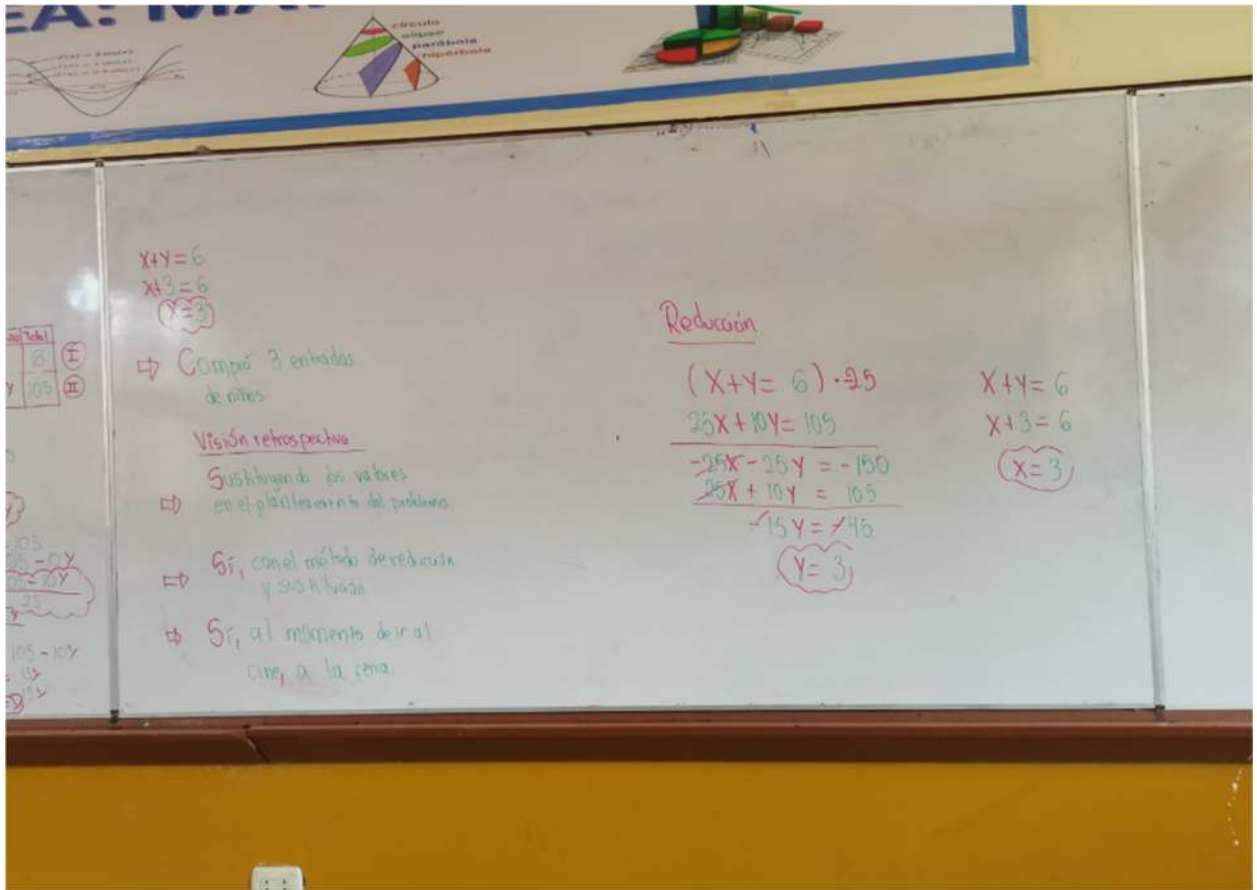 EA: MA
círculo
elipse
parábola
hipérbola
Total
6 I
y 105 II
105 - 10y
X+Y=6
X+3=6
X=3
⇨ Compró 3 entradas
de niños
Visión retrospectiva
Sustituyendo los valores
⇨ en el planteamiento del problema
⇨ Sí, con el método de reducción
y sustitución
⇨ Sí, al momento de ir al
cine, a la feria.
Reducción
(X+Y= 6) · -25
25X + 10Y = 105
-25X - 25Y = -150
25X + 10Y = 105
-15Y = -45
Y= 3
X+Y= 6
X+3 = 6
X=3